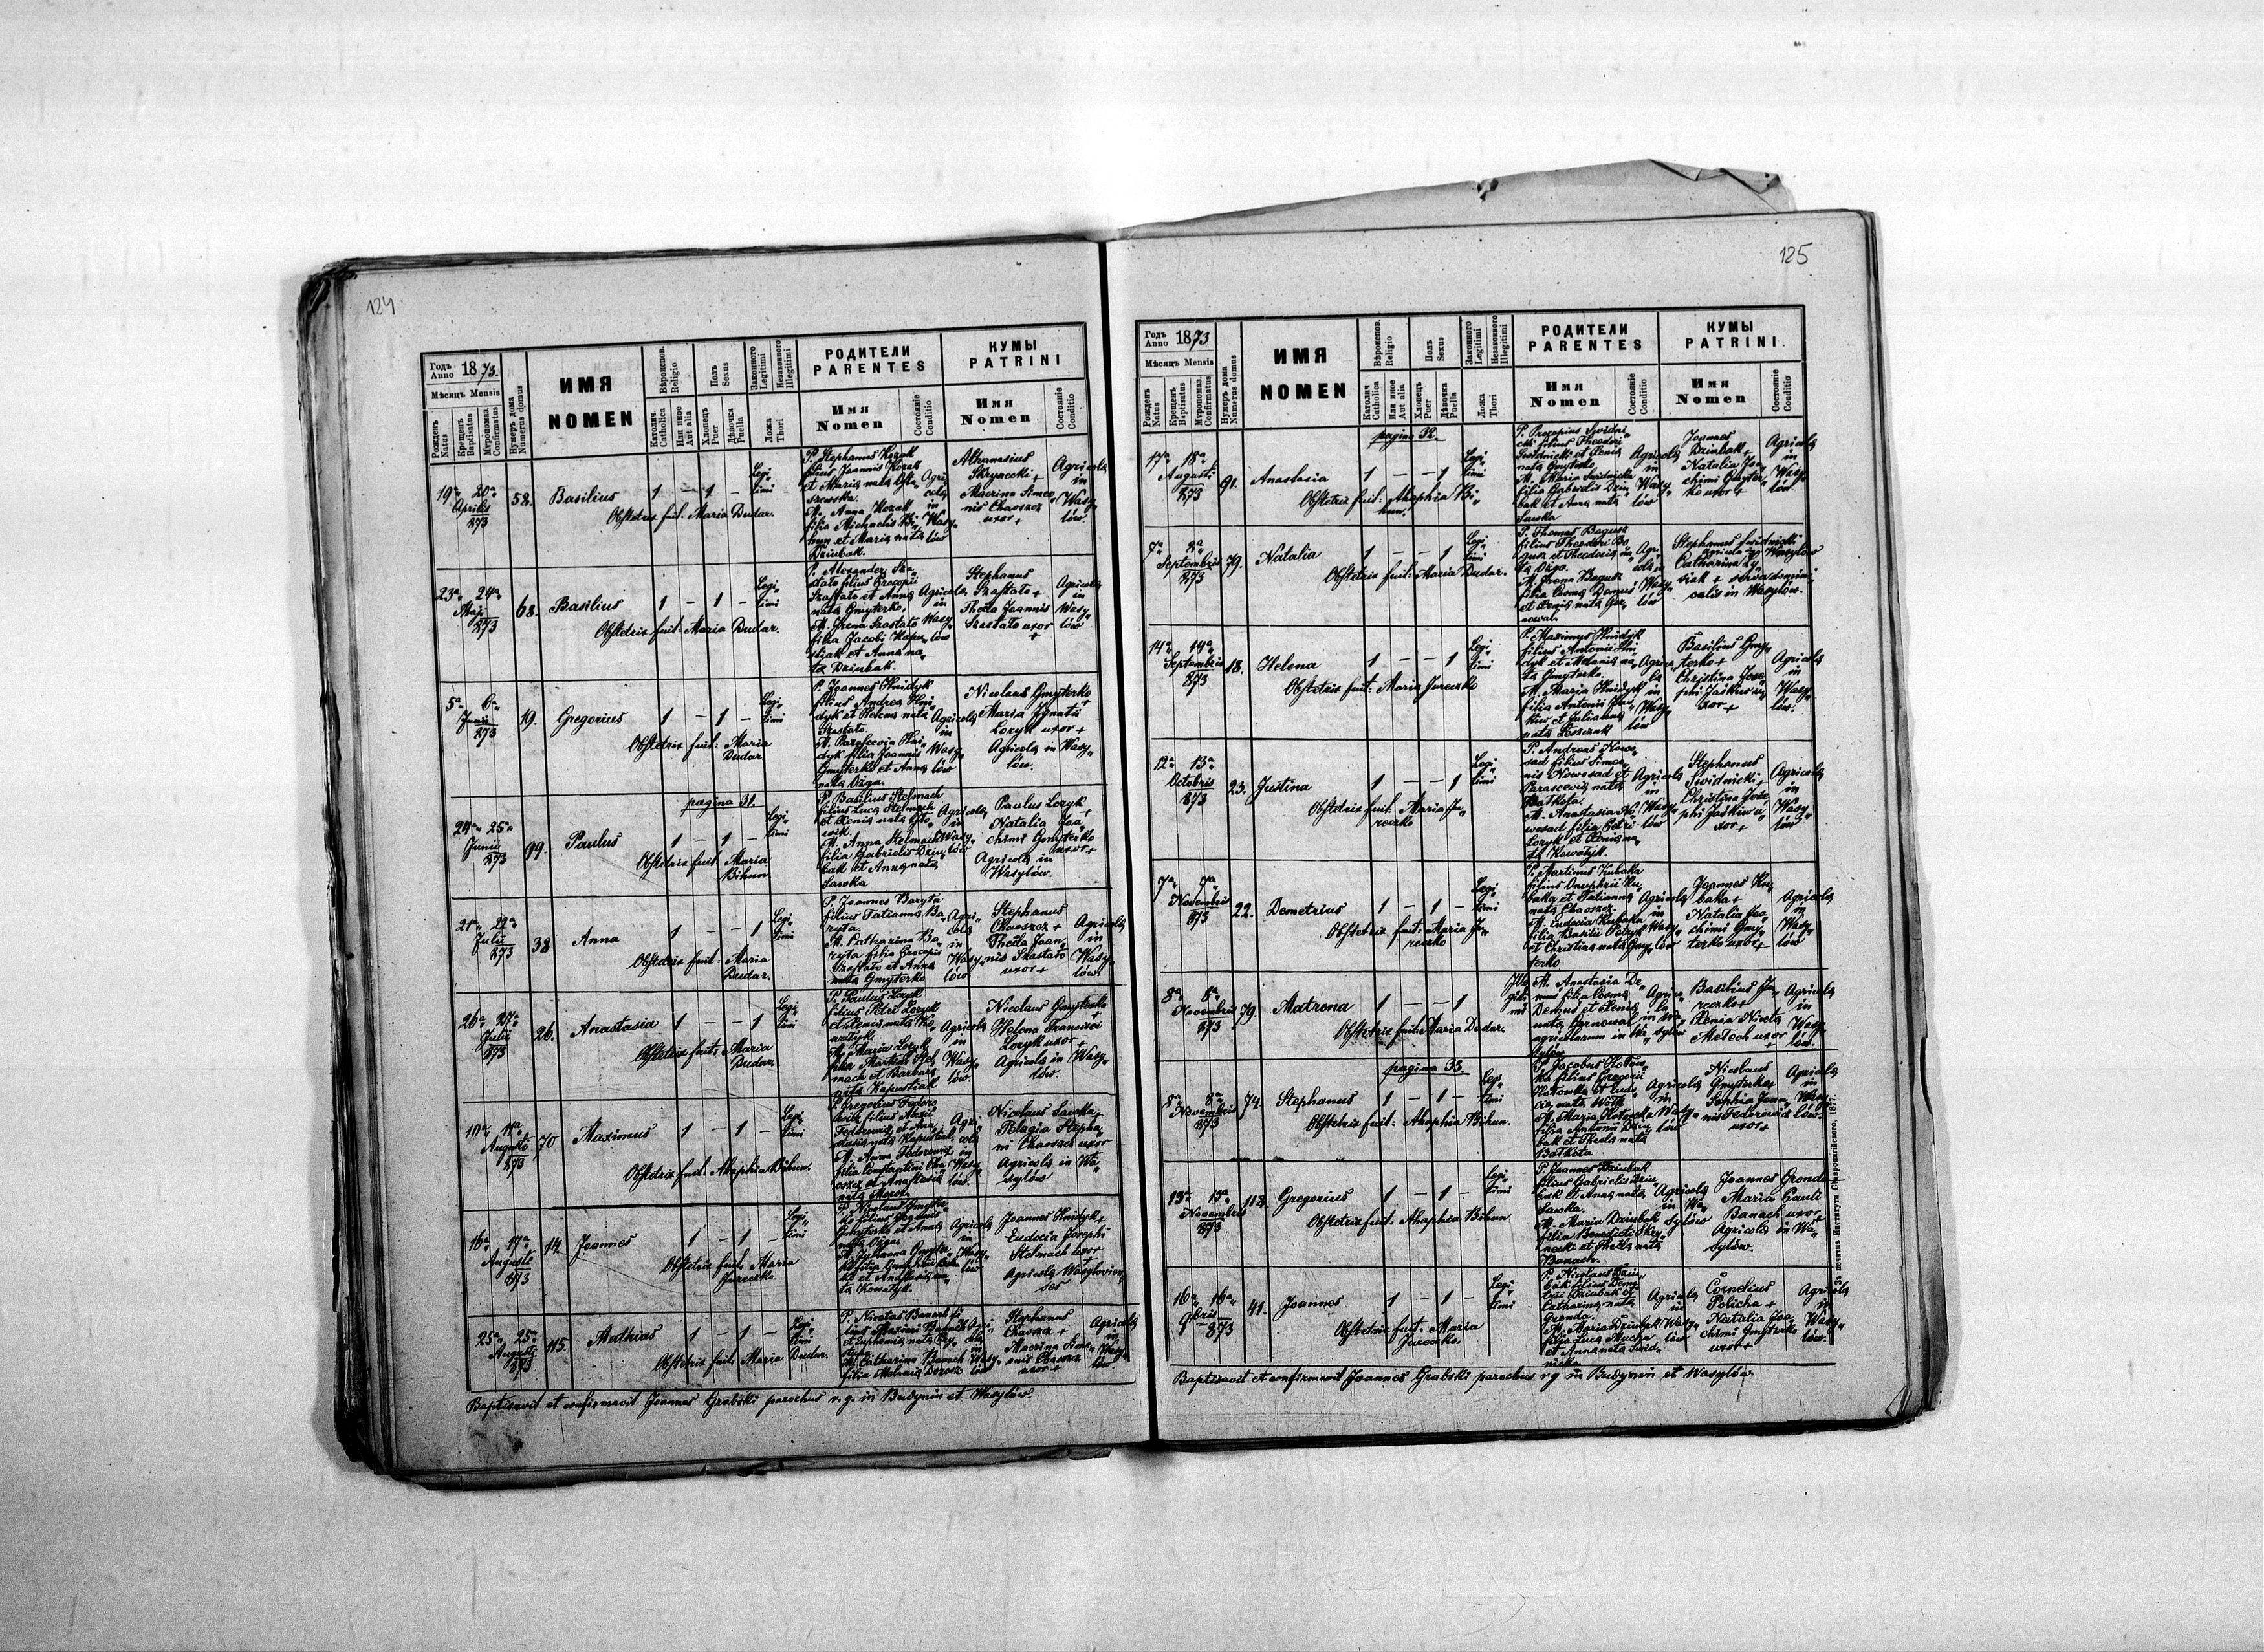 124
Годъ Anno 1873.
Мѣсяцъ Mensis
Рожденъ Natus
Крещенъ Baptisatus
Мѵропомаз. Confirmatus
Нумеръ дома Numerus domus
ИМЯ
NOMEN
Вѣроиспов. Religio
Католич. Catholica
Или иное Aut alia
Полъ Sexus
Хлопецъ Puer
Дѣвочка Puella
Законного Legitimi
Незаконного Illegitimi
Ложа Thori
РОДИТЕЛИ
PARENTES
Имя Nomen
Состояніе Conditio
КУМЫ
PATRINI
Имя Nomen
Состояніе Conditio
19a 20a Aprilis 873
58.
Basilius
1 – 1 –
Legitimi
Obstetrix fuit: Maria Dudar.
P. Stephanus Kozak
filius Joannis Kozak
et Maria nata
M. Anna Kozak
filia Michaelis Bi„
hun et Maria nata
Dziubak.
Agricola in Wasylów
Athanasius
Macrina Simeo„
nis Chaoszcz
uxor +
Agricola in Wasylów.
23a 24a Maji 873
68.
Basilius
1 – 1 –
Legitimi
Obstetrix fuit: Maria Dudar.
P. Alexander Sza„
stało filius Procopii
Szastało et Anna
nata Gmyterko.
M. Irena Szastało
filia Jacobi Kapu„
ściak et Anna na„
ta Dziubak.
Agricola in Wasylów
Stephanus
Szastało +
Thecla Joannis
Szastało uxor
+
Agricola in Wasylów
5a 6a Junii 873
19.
Gregorius
1 – 1 –
Legitimi
Obstetrix fuit: Maria
Dudar
P. Joannes Hnidyk
filius Andrea Hni„
dyk et Helena nata
Szastało.
M. Parascevia Hni„
dyk filia Joannis
Gmyterko et Anna
nata Dżga.
Agricola in Wasylów
Nicolaus Gmyterko
+
Maria Ignatii
Lozyk uxor +
Agricola in Wasy„
lów.
pagina 31.
24a 25a Junii 873
99.
Paulus
1 – 1 –
Legitimi
Obstetrix fuit: Maria
Bihun
P. Basilius Stelmach
filius Luca Stelmach
et Xenia nata
M. Anna Stelmach
filia Gabrielis Dziu„
bak et Anna nata
Sawka
Agricola in Wasylów
Paulus Lozyk
+
Natalia Joa„
chimi Gmyterko
uxor +
Agricola in
Wasylów.
21a 22a Julii 873
38
Anna
1 – – 1
Legitimi
Obstetrix fuit: Maria
Dudar.
P. Joannes Baryła
filius Tatianna Ba„
ryła.
M. Catharina Ba„
ryła filia Procopii
Szastało et Anna
nata Gmyterko
Agricola in Wasylów
Stephanus
Chaoszcz +
Thecla Joan„
nis Szastało
uxor +
Agricola in Wasylów.
26a 27a Julii 873
26.
Anastasia
1 – – 1
Legitimi
Obstetrix fuit: Maria
Dudar.
P. Paulus Lozyk
filius Petri Lozyk
et Xenia nata Ko„
wałyk.
M. Maria Lozyk
filia Martini Stel„
mach et Barbara
nata Kapuściak
Agricola in Wasylów.
Nicolaus Gmyterko
+
Helena Francisci
Lozyk uxor +
Agricola in Wasy„
lów.
10a 11a Augusti 873
70
Maximus
1 – 1 –
Legitimi
Obstetrix fuit: Ahaphia Bihun.
P. Gregorius Fedoro„
wicz filius Alexii
Fedorowicz et Ana„
stasia nata Kapuściak.
M. Anna Fedorowicz
filia Constantini Cha„
oszcz et Anastasia
nata Moroz.
Agricola in Wasylów.
Nicolaus Sawka +
Pelagia Stepha„
ni Chaoszcz uxor
Agricola in Wa„
sylów
16a 17a Augusti 873
14.
Joannes
1 – 1 –
Legitimi
Obstetrix fuit: Maria
Jureczko.
P. Nicolaus Gmyter„
ko filius Joannis
Gmyterko et Anna
nata Dżga.
M. Julianna Gmyter„
ko filia
et Anastasia na„
ta Kowałyk.
Agricola in Wasylów
Joannes Hnidyk +
Eudocia Josephi
Stelmach uxor
Agricola Wasylovien„
ses
25a 25a Augusti 873
115.
Mathias
1 – 1 –
Legitimi
Obstetrix fuit: Maria Dudar.
P. Nicetas Banach fi„
lius Maximi Banach
et Euphemia nata
M. Catharina Banach
filia Melania
Agricola in Wasylów
Stephanus
Chaoszcz +
Macrina Sime„
onis Chaoszcz
uxor +
Agricola in Wasylów
Baptisavit et confirmavit Joannes Grabski parochus r.g. in Budynin et Wasylów.
125
Годъ Anno 1873
Мѣсяцъ Mensis
Рожденъ Natus
Крещенъ Baptisatus
Мѵропомаз. Confirmatus
Нумеръ дома Numerus domus
ИМЯ
NOMEN
Вѣроиспов. Religio
Католич. Catholica
Или иное Aut alia
Полъ Sexus
Хлопецъ Puer
Дѣвочка Puella
Законного Legitimi
Незаконного Illegitimi
Ложа Thori
РОДИТЕЛИ
PARENTES
Имя Nomen
Состояніе Conditio
КУМЫ
PATRINI.
Имя Nomen
Состояніе Conditio
pagina 32.
17a 18a Augusti 873
91.
Anastasia
1 – – 1
Legitimi
Obstetrix fuit: Ahaphia Bi„
hun.
P. Procopius Swidni„
cki filius Theodori
Swidnicki et Xenia
nata Gmyterko.
M. Maria Swidnicka
filia Gabrielis Dziu„
bak et Anna nata
Sawka
Agricola in Wasylów
Joannes
Dziubak +
Natalia Joa„
chimi Gmyter„
ko uxor +
Agricola in Wasylów.
7a 8a Septembris 873
79.
Natalia
1 – – 1
Legitimi
Obstetrix fuit: Maria Dudar.
P. Thomas Bogusz
filius Theodori Bo„
gusz et Theodosia na„
ta Dżga.
M. Irena Bogusz
filia Cosma Demus
et Xenia nata
Agricola in Wasylów
Stephanus Swidnicki
Agricola in Wasylów
Catharina
+ serva domini„
calis in Wasylów.
14a 14a Septembris 873
18.
Helena
1 – – 1
Legitimi
Obstetrix fuit: Maria Jureczko
P. Maximus Hnidyk
filius Antonii Hni„
dyk et Melania na„
ta Gmyterko.
M. Maria Hnidyk
filia Antonii
et Julianna
nata
Agricola in Wasylów
Basilius Gmy„
terko +
Christina Jose„
phi Jaśkiw u„
xor +
Agricola in Wasylów.
12a 13a Octobris 873
23.
Justina
1 – – 1
Legitimi
Obstetrix fuit: Maria Ju„
reczko
P. Andreas Nowo„
sad filius Simeo„
nis Nowosad et
Parascevia nata
Bałkota.
M. Anastasia No„
wosad filia Petri
Lozyk et Xenia na„
ta Kowałyk.
Agricola in Wasylów
Stephanus
Swidnicki +
Christina Jose„
phi Jaśkiw u„
xor +
Agricola in Wasylów
7a 7a Novembris 873
22.
Demetrius
1 – 1 –
Legitimi
Obstetrix fuit: Maria Ju„
reczko
P. Martinus Kubaka
filius Onuphrii Ku„
baka et Tatianna
nata Chaoszcz.
M. Eudocia Kubaka
filia Basilii Petryk
et Christina nata Gmy„
terko
Agricola in Wasylów
Joannes Ku„
baka +
Natalia Joa„
chimi Gmy„
terko uxor +
Agricola in Wasylów
8a 8a Novembris 873
79.
Matrona
1 – – 1
Illegitimi
Obstetrix fuit: Maria Dudar.
M. Anastasia De„
mus filia Cosma
Demus et Xenia
nata
agricolarum in Wa„
sylów
Agricola in Wasylów
Basilius Ju„
reczko +
Xenia Niceta
Mełech uxor
+
Agricola in Wasylów.
pagina 33.
8a 8a Novembris 873
74.
Stephanus
1 – 1 –
Legitimi
Obstetrix fuit: Ahaphia Bihun.
P. Jacobus Hołow„
ka filius Gregorii
Hołowka et Eudo„
cia nata
M. Maria Hołowka
filia Antonii Dziu„
bak et Thecla nata
Bałkota
Agricola in Wasylów
Nicolaus
Gmyterko +
Sophia Joan„
nis Fedorowicz
uxor +
Agricola in Wasylów.
13a 13a Novembris 873
113.
Gregorius
1 – 1 –
Legitimi
Obstetrix fuit: Ahaphia Bihun
P. Joannes Dziubak
filius Gabrielis Dziu„
bak et Anna nata
Sawka.
M. Maria Dziubak
filia Benedicti
et Thecla nata
Banach.
Agricola in Wasylów
Joannes Gronda +
Maria Pauli
Banach uxor +
Agricola in Wa„
sylów.
16a 16a 9bris 873
41.
Joannes
1 – 1 –
Legitimi
Obstetrix fuit: Maria
Jureczko.
P. Nicolaus Dziu„
bak filius Deme„
trii Dziubak et
Catharina nata
Gronda.
M. Maria Dziubak
filia Luca Mucha
et Anna nata Swid„
nicka
Agricola in Wasylów
Cornelius
Policha +
Natalia Joa„
chimi Gmyterko
uxor +
Agricola in Wasylów.
Baptisavit et confirmavit Joannes Grabski parochus r.g. in Budynin et Wasylów
Зъ печатни Института Ставропигійского. 1877.